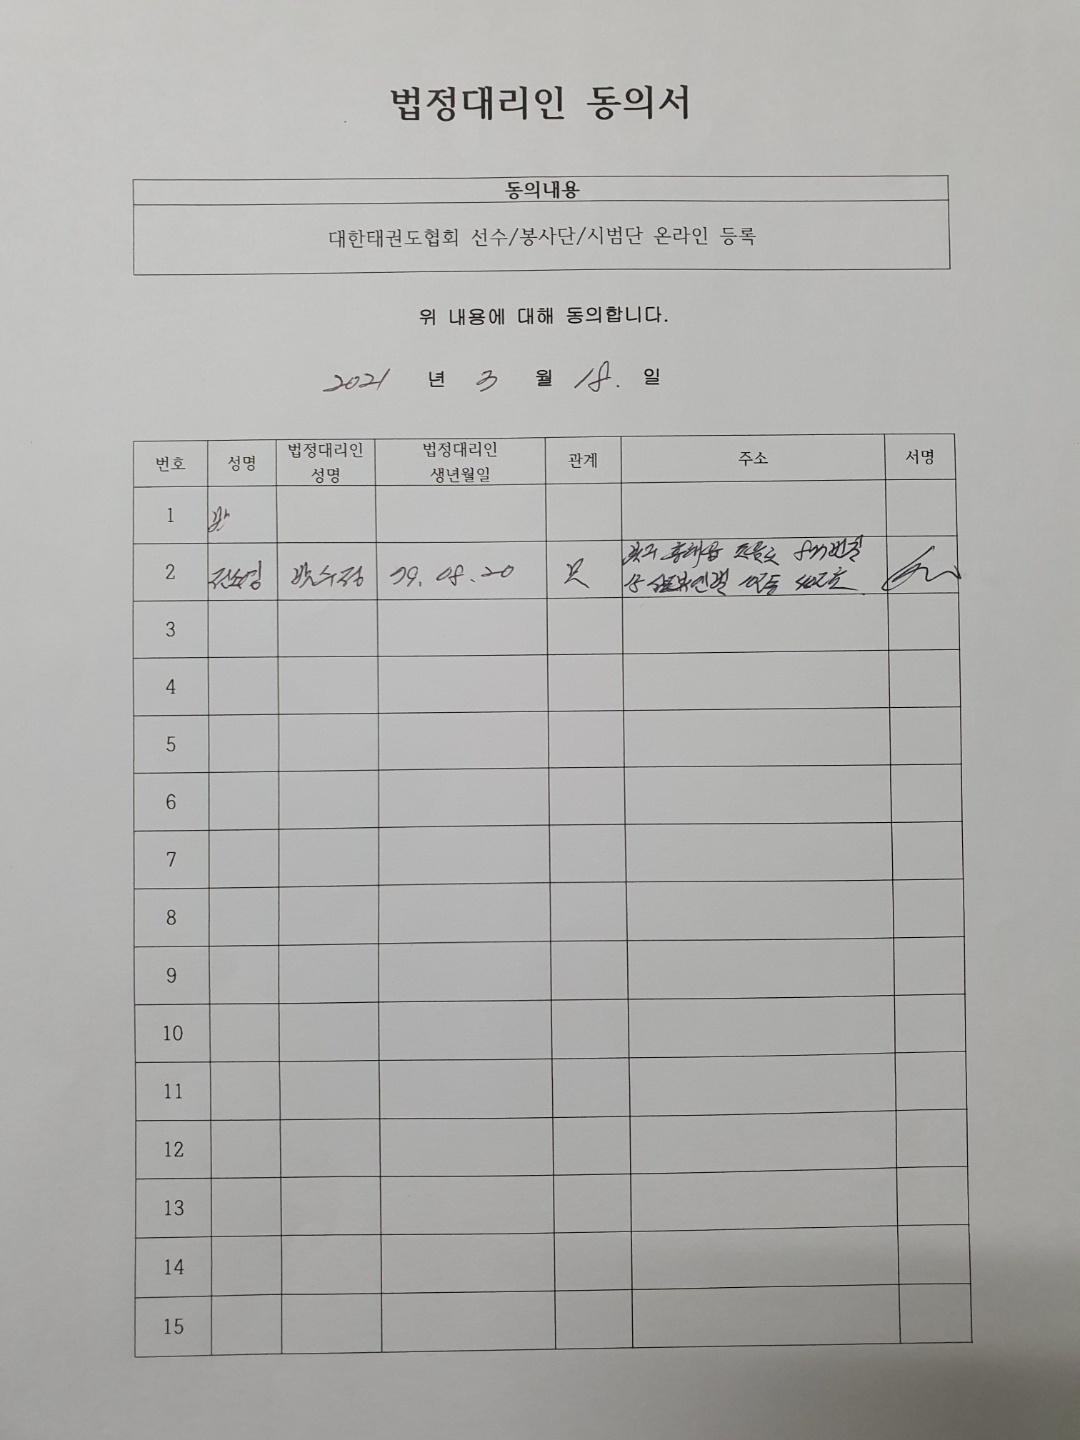 법정대리인 동의서
동의내용
대한태권도협회 선수/봉사단/시범단 온라인 등록
위 내용에 대해 동의합니다.
2021 년 3 월 18. 일
번호 성명 법정대리인 성명 법정대리인 생년월일 관계 주소 서명
1 박
2 박수정 79. 08. 20 모
3
4
5
6
7
8
9
10
11
12
13
14
15